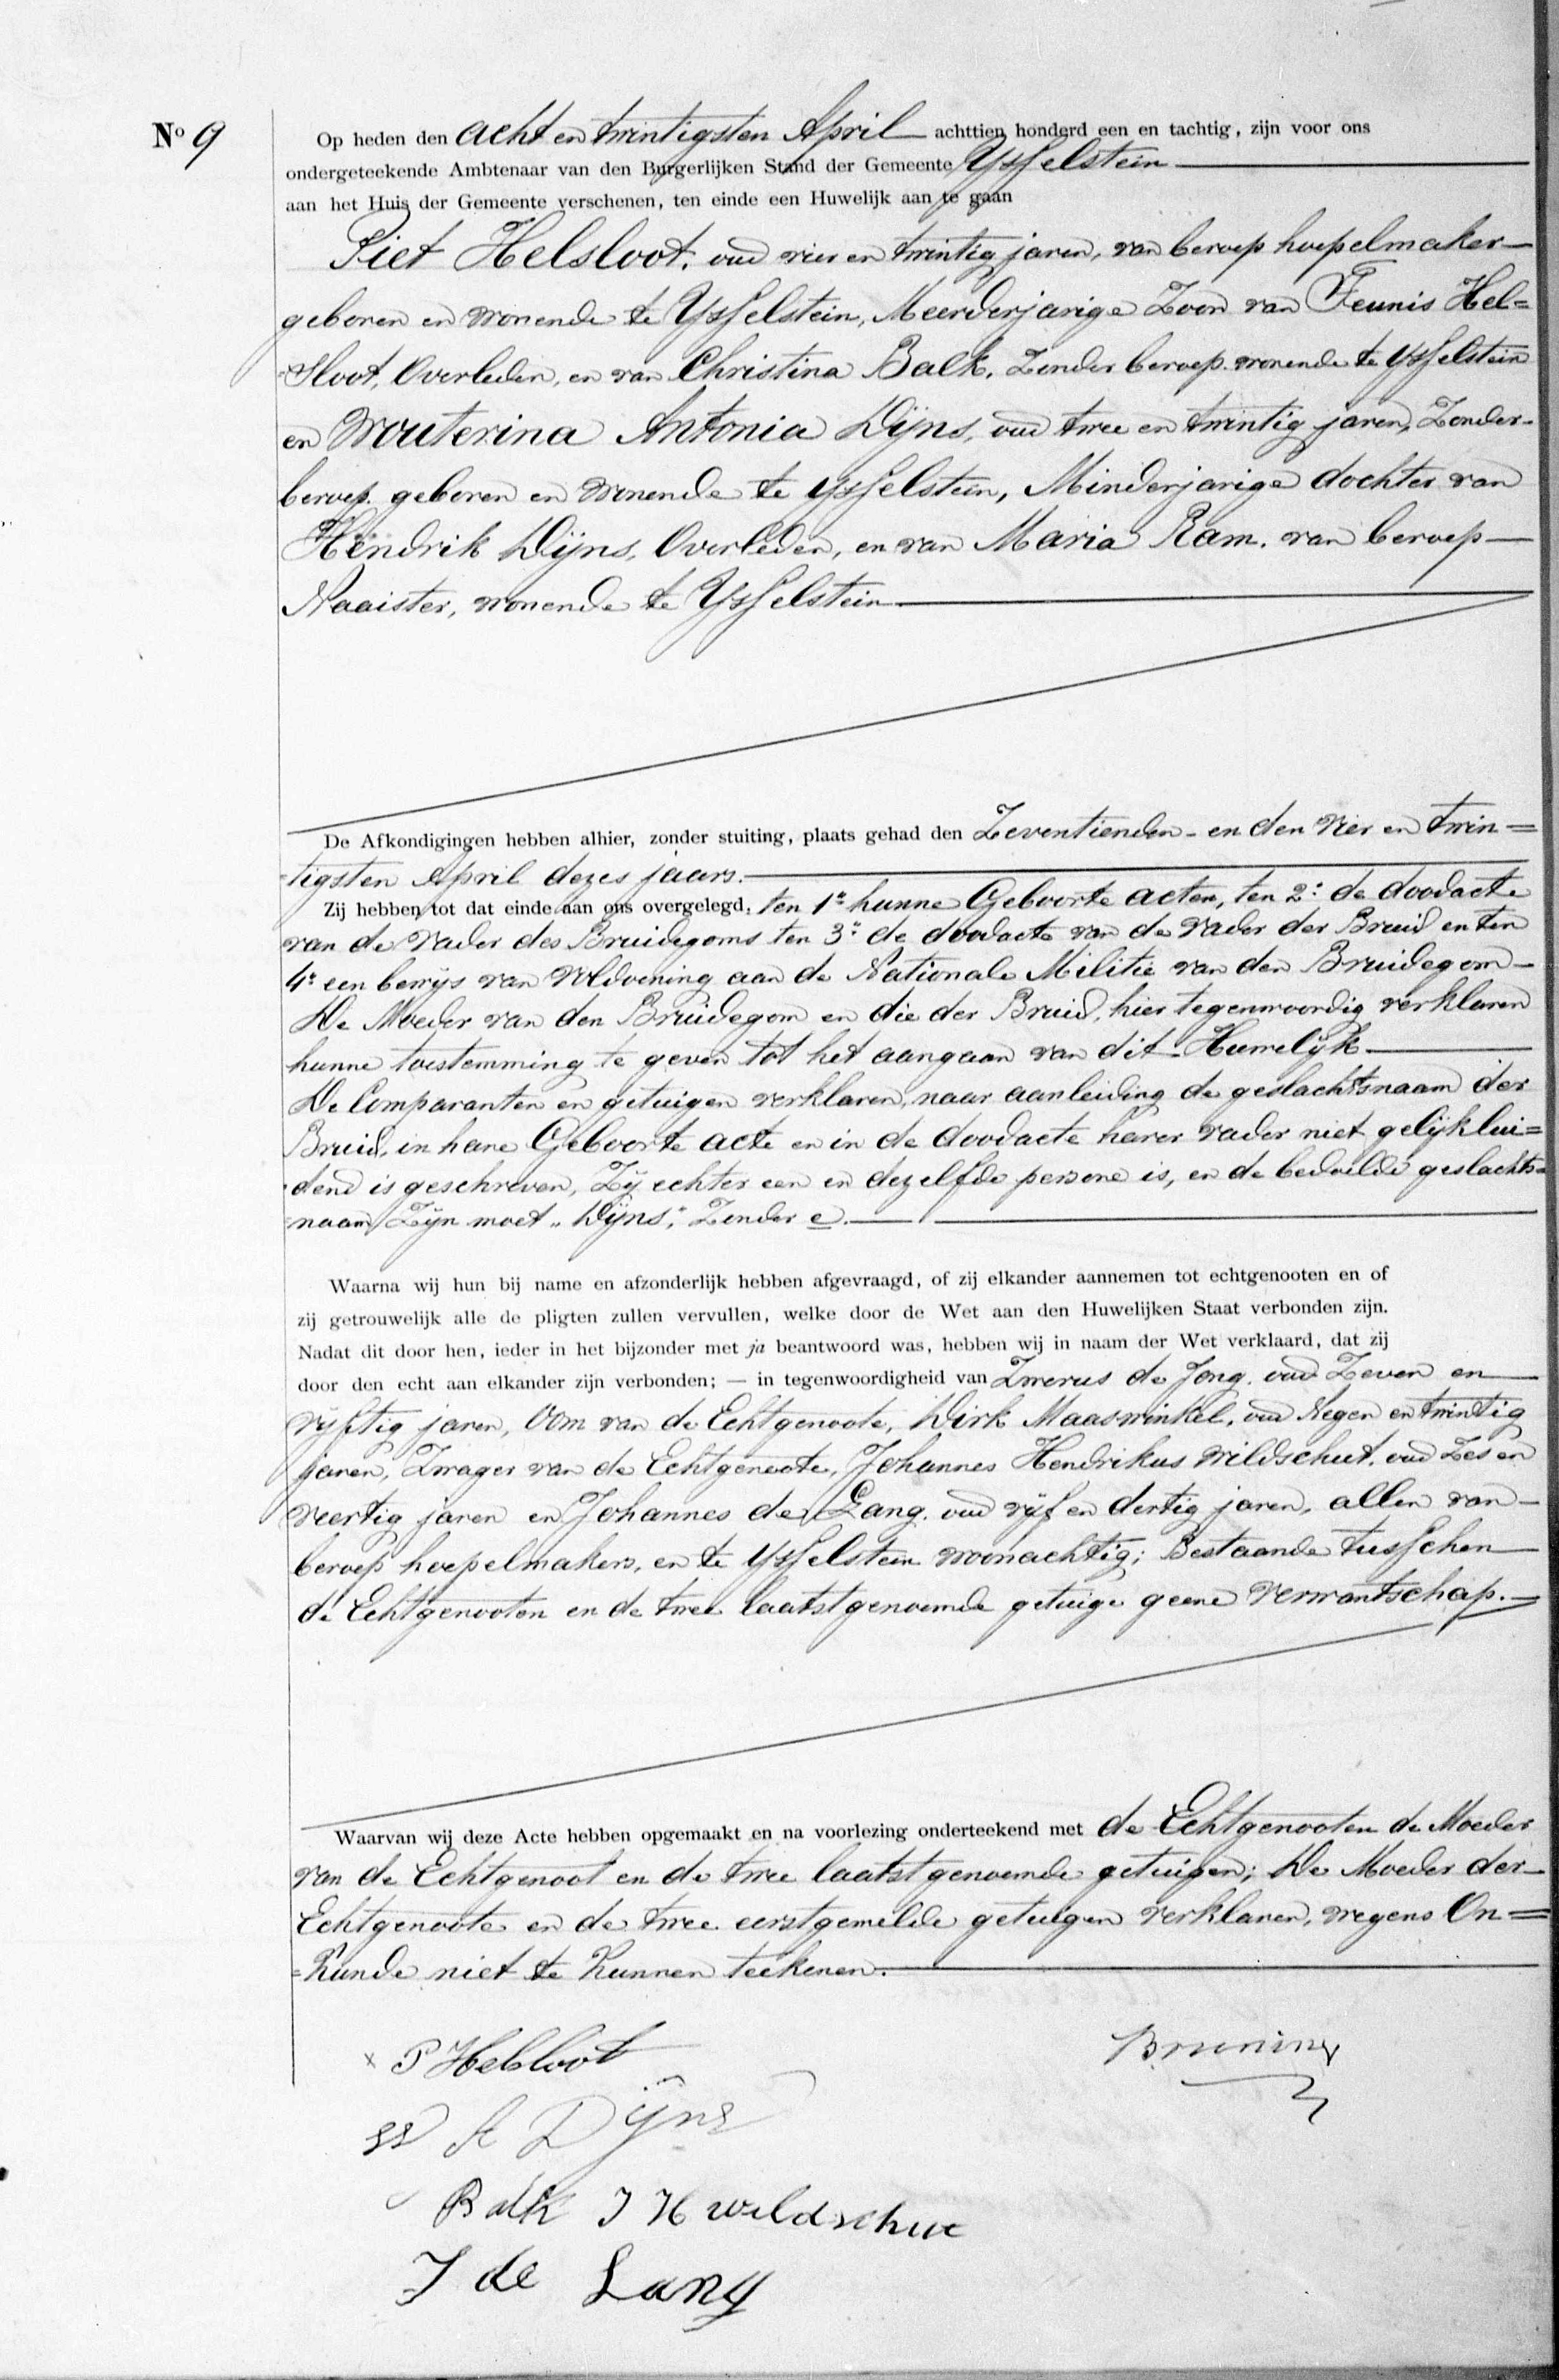 No 9
Op heden den acht en twintigsten April achttien honderd een en tachtig, zijn voor ons
ondergeteekende Ambtenaar van den Burgerlijken Stand der Gemeente Ysselstein
aan het Huis der Gemeente verschenen, ten einde een Huwelijk aan te gaan
Piet Helsloot, oud vier en twintig jaren, van beroep hoepelmaker
geboren en wonende te Ysselstein, Meerderjarige Zoon van Teunis Hel=
=sloot, Overleden, en van Christina Balk, Zonder beroep wonende te Ysselstein
en Wouterina Antonia Dijns, oud twee en twintig jaren, Zonder-
beroep geboren en wonende te Ysselstein, Minderjarige dochter van
Hendrik Dijns, Overleden, en van Maria Ram, van beroep
Naaister, wonende te Ysselstein
De Afkondigingen hebben alhier, zonder stuiting, plaats gehad den Zeventienden - en den vier en twin=
=tigsten April dezes jaars.
Zij hebben tot dat einde aan ons overgelegd, ten 1e hunne Geboorte acten, ten 2e de doodacte
van de vader des Bruidegoms ten 3e de doodacte van de vader der Bruid en ten
4e een bewijs van voldoening aan de Nationale Militie van den Bruidegom
De Moeder van den Bruidegom en die der Bruid, hier tegenwoordig verklaren
hunne toestemming te geven tot het aangaan van dit Huwelijk
De Comparanten en getuigen verklaren, naar aanleiding de geslachtsnaam der
Bruid, in hare Geboorte acte en in de doodacte harer vader niet gelijklui=
=dend is geschreven, Zij echter een en dezelfde persone is, en de bedoelde geslachts=
=naam Zijn moet „Dijns", Zonder e.
Waarna wij hun bij name en afzonderlijk hebben afgevraagd, of zij elkander aannemen tot echtgenooten en of
zij getrouwelijk alle de pligten zullen vervullen, welke door de Wet aan den Huwelijken Staat verbonden zijn.
Nadat dit door hen, ieder in het bijzonder met ja beantwoord was, hebben wij in naam der Wet verklaard, dat zij
door den echt aan elkander zijn verbonden; — in tegenwoordigheid van Zwerus de Jong, oud Zeven en
vijftig jaren, Oom van de Echtgenoote, Dirk Maaswinkel, oud Negen en twintig
jaren, Zwager van de Echtgenoote, Johannes Hendrikus Wildschut, oud Zes en
veertig jaren en Johannes de Lang, oud vijf en dertig jaren, allen van-
beroep hoepelmakers, en te Ysselstein woonachtig; Bestaande tusschen
de Echtgenooten en de twee laatstgenoemde getuige geene verwantschap.
Waarvan wij deze Acte hebben opgemaakt en na voorlezing onderteekend met de Echtgenooten de Moeder
van de Echtgenoot en de twee laatstgenoemde getuigen; De Moeder der
Echtgenoote en de twee eerstgemelde getuigen verklaren, wegens On=
=kunde niet te kunnen teekenen.
P Helsloot
Bruning
W A Dijns
Balk J H Wildschut
J de Lang